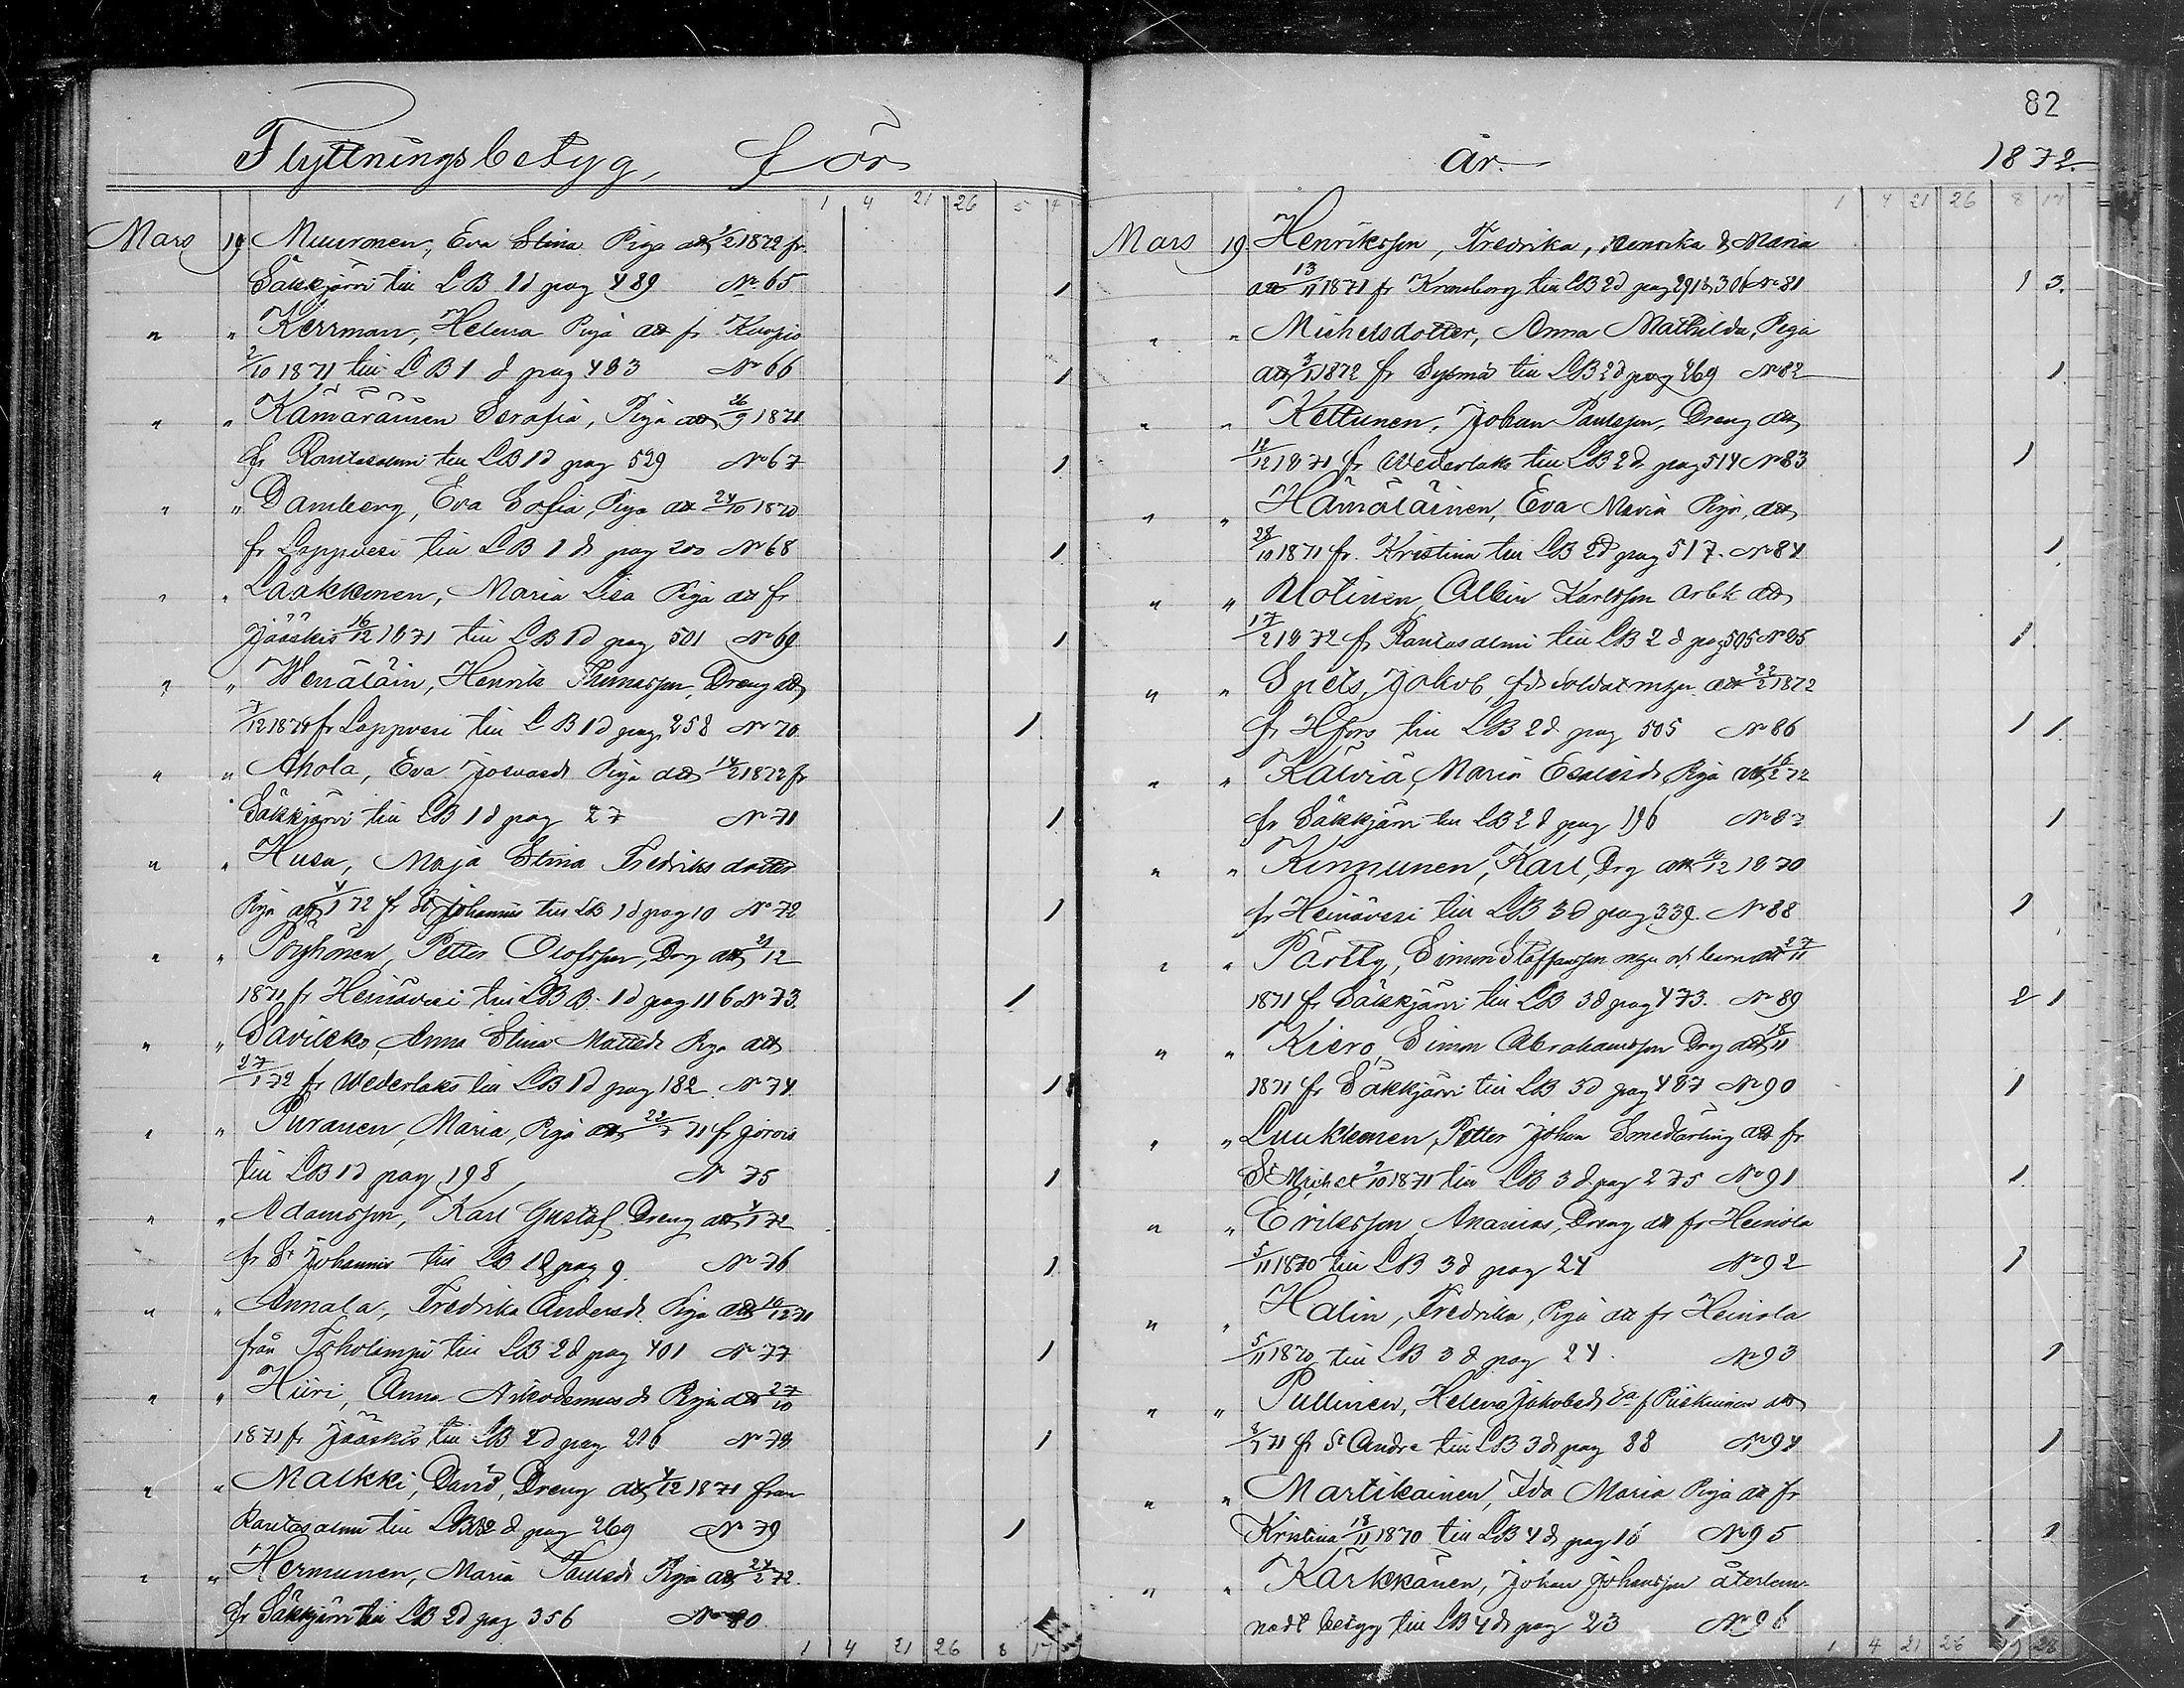 82
Flyttningsbetyg, för
1 4 21 26 5 4
Mars 19 Muuronen, Eva Stina Piga att 1/2 1872 fr.
Säkkjärvi till LB 1 d pag 489 No 65 1
" " Kerrman, Helena Piga att fr Kuopio
2/10 1871 till LB 1 d pag 483 No 66 1
" " Kämäräinen Serafia, Piga att 26/9 1871
fr Rantasalmi till LB 1 d pag 529 No 67 1
" " Damberg, Eva Sofia, Piga att 24/10 1870
fr Lappvesi till LB 1 d pag 200 No 68 1
" " Laakkonen, Maria Lisa Piga att fr
Jääskis 16/12 1871 till LB 1 d pag 501 No 69 1
" " Henrik Thomasson, Dreng att
7/12 1870 fr Lappvesi till LB 1 d pag 258 No 70 1
" " Ahola, Eva Josuasdr Piga att 14/2 1872 fr
Säkkjärvi till LB 1 d pag 27 No 71 1
" " Husu, Maja Stina Fredriks dotter
Piga att 4/1 72 fr St Johannis till LB 1 d pag 10 No 72 1
" " Pöyhönen, Petter Olofsson, Drg att 21/12
1871 fr Heinävesi till LB 1 d pag 116 No 73. 1
" " Anna Stina Mattsdr Piga att
27/1 72 fr Wederlaks till LB 1 d pag 182 No 74 1
" " Puranen, Maria, Piga att 22/7 71 fr Jorois
till LB 1 d pag 198 No 75 1
" " Adamsson, Karl Gustaf Dreng att 4/1 72
fr St Johannis till LB 1 d pag 9 No 76 1
" " Annala, Fredrika Andersdr Piga att 16/12 71
från Toholampi till LB 2 d pag 401 No 77 1
" " Hiiri, Anna Nikodemusdr Piga att 27/10
1871 fr Jääskis till LB 2 d pag 216 No 78 1
" " Malkki, David, Dreng att 4/12 1871 från
Rantasalmi till LB 2 d pag 269 No 79 1
" " Hermunen, Maria Paulsdr Piga att 24/2 72.
fr Säkkjärvi till LB 2 d pag 356 No 80
1 4 21 26 8 17
år 1872.
1 4 21 26 8 17
Mars 19 Henriksson, Fredrika, Henrika & Maria
att 13/11 1871 fr Kronoborg till LB 2 d pag 291 & 306 No 81 1 3.
" " Michelsdotter, Anna Mathilda, Piga
att 1872 fr Sysmä till LB 2 d pag 269 No 82 1
" " Kettunen, Johan Paulsson, Dreng att
12/12 1871 fr Wederlaks till LB 2 d pag 514 No 83 1
" " Hämäläinen, Eva Maria Piga, att
28/10 1871 fr. Kristina till LB 2 d pag 517. No 84 1
" " Albin Karlsson arbk att
17/2 1872 fr Rantasalmi till LB 2 d pag 505 No 85 1.
" " Jakob, fd soldat m hu att 22/2 1872
fr Hfors till LB 2 d pag 505 No 86 1 1.
" " Kälviä, Maria Esaiasdr Piga att 16/2 72
fr Säkkjärvi till LB 2 d pag 196 No 87 1
" " Kinnunen, Karl, Drg att 12 1870
fr Heinävesi till LB 3 d pag 339. No 88 1
" " Pärtty, Simon Staffansson m hu o barn att 27/11
1871 fr Säkkjärvi till LB 3 d pag 473. No 89 2 1
" " Kiero, Simon Abrahamsson Drg att 18/11
1871 fr Säkkjärvi till LB 3 d pag 487 No 90 1
" " Luukkonen, Petter Johan Smedlärling att fr
St Michel 2/10 1871 till LB 3 d pag 275 No 91 1
" " Eriksson, Ananias, Dreng att fr Heinola
5/11 1870 till LB 3 d pag 24 No 92 1
" " Halin, Fredrika, Piga att fr Heinola
5/11 1870 till LB 3 d pag 24. No 93 1
" " Pullinen, Helena Jakobsdr f Piiskuinen att
71 fr St Andre till LB 3 d pag 88 No 94 1
" " Martikainen, Ida Maria Piga att fr
Kristina 18/11 1870 till LB 4 d pag 16 No 95 1
" " Kärkkänen, Johan Johansson återlem-
nadt betyg till LB 4 d pag 23 No 96
1 4 21 26 19 28